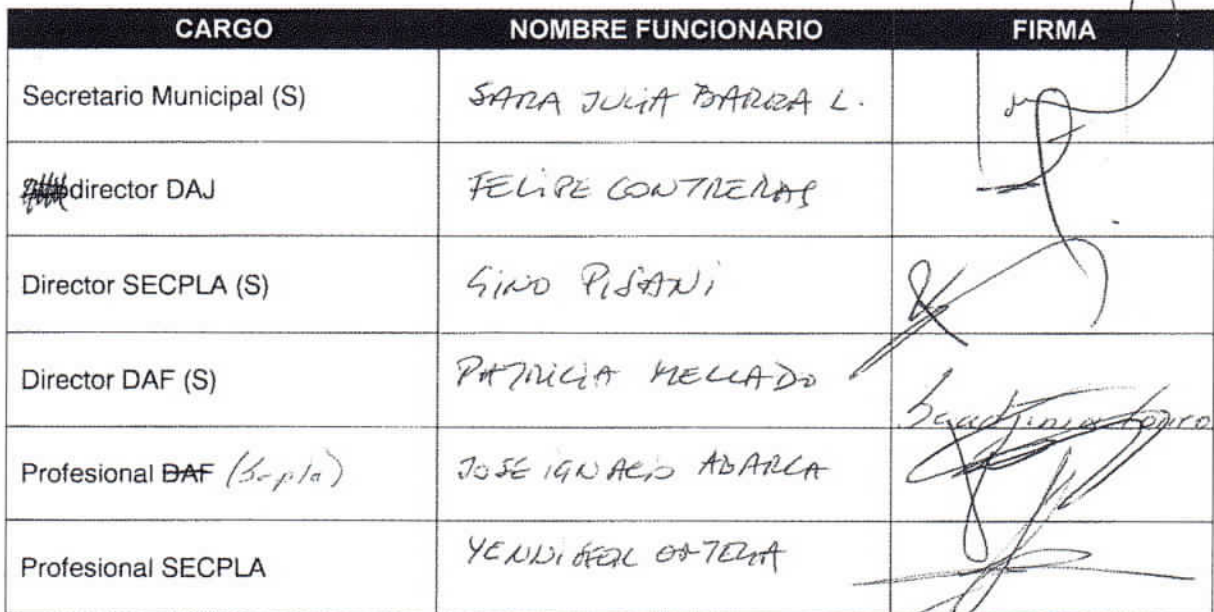 CARGO NOMBRE FUNCIONARIO FIRMA
Secretario Municipal (S) SARA JULIA BARRA L.
director DAJ FELIPE CONTRERAS
Director SECPLA (S) GINO PISANI
Director DAF (S) PATRICIA MELLADO
Profesional DAF (Secpla) JOSE IGNACIO ABARCA
Profesional SECPLA YENNIFER